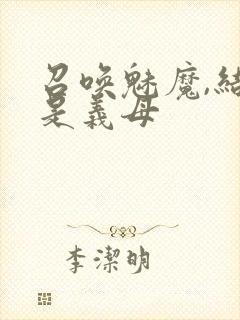 召喚魅魔,結
是義母
李潔明